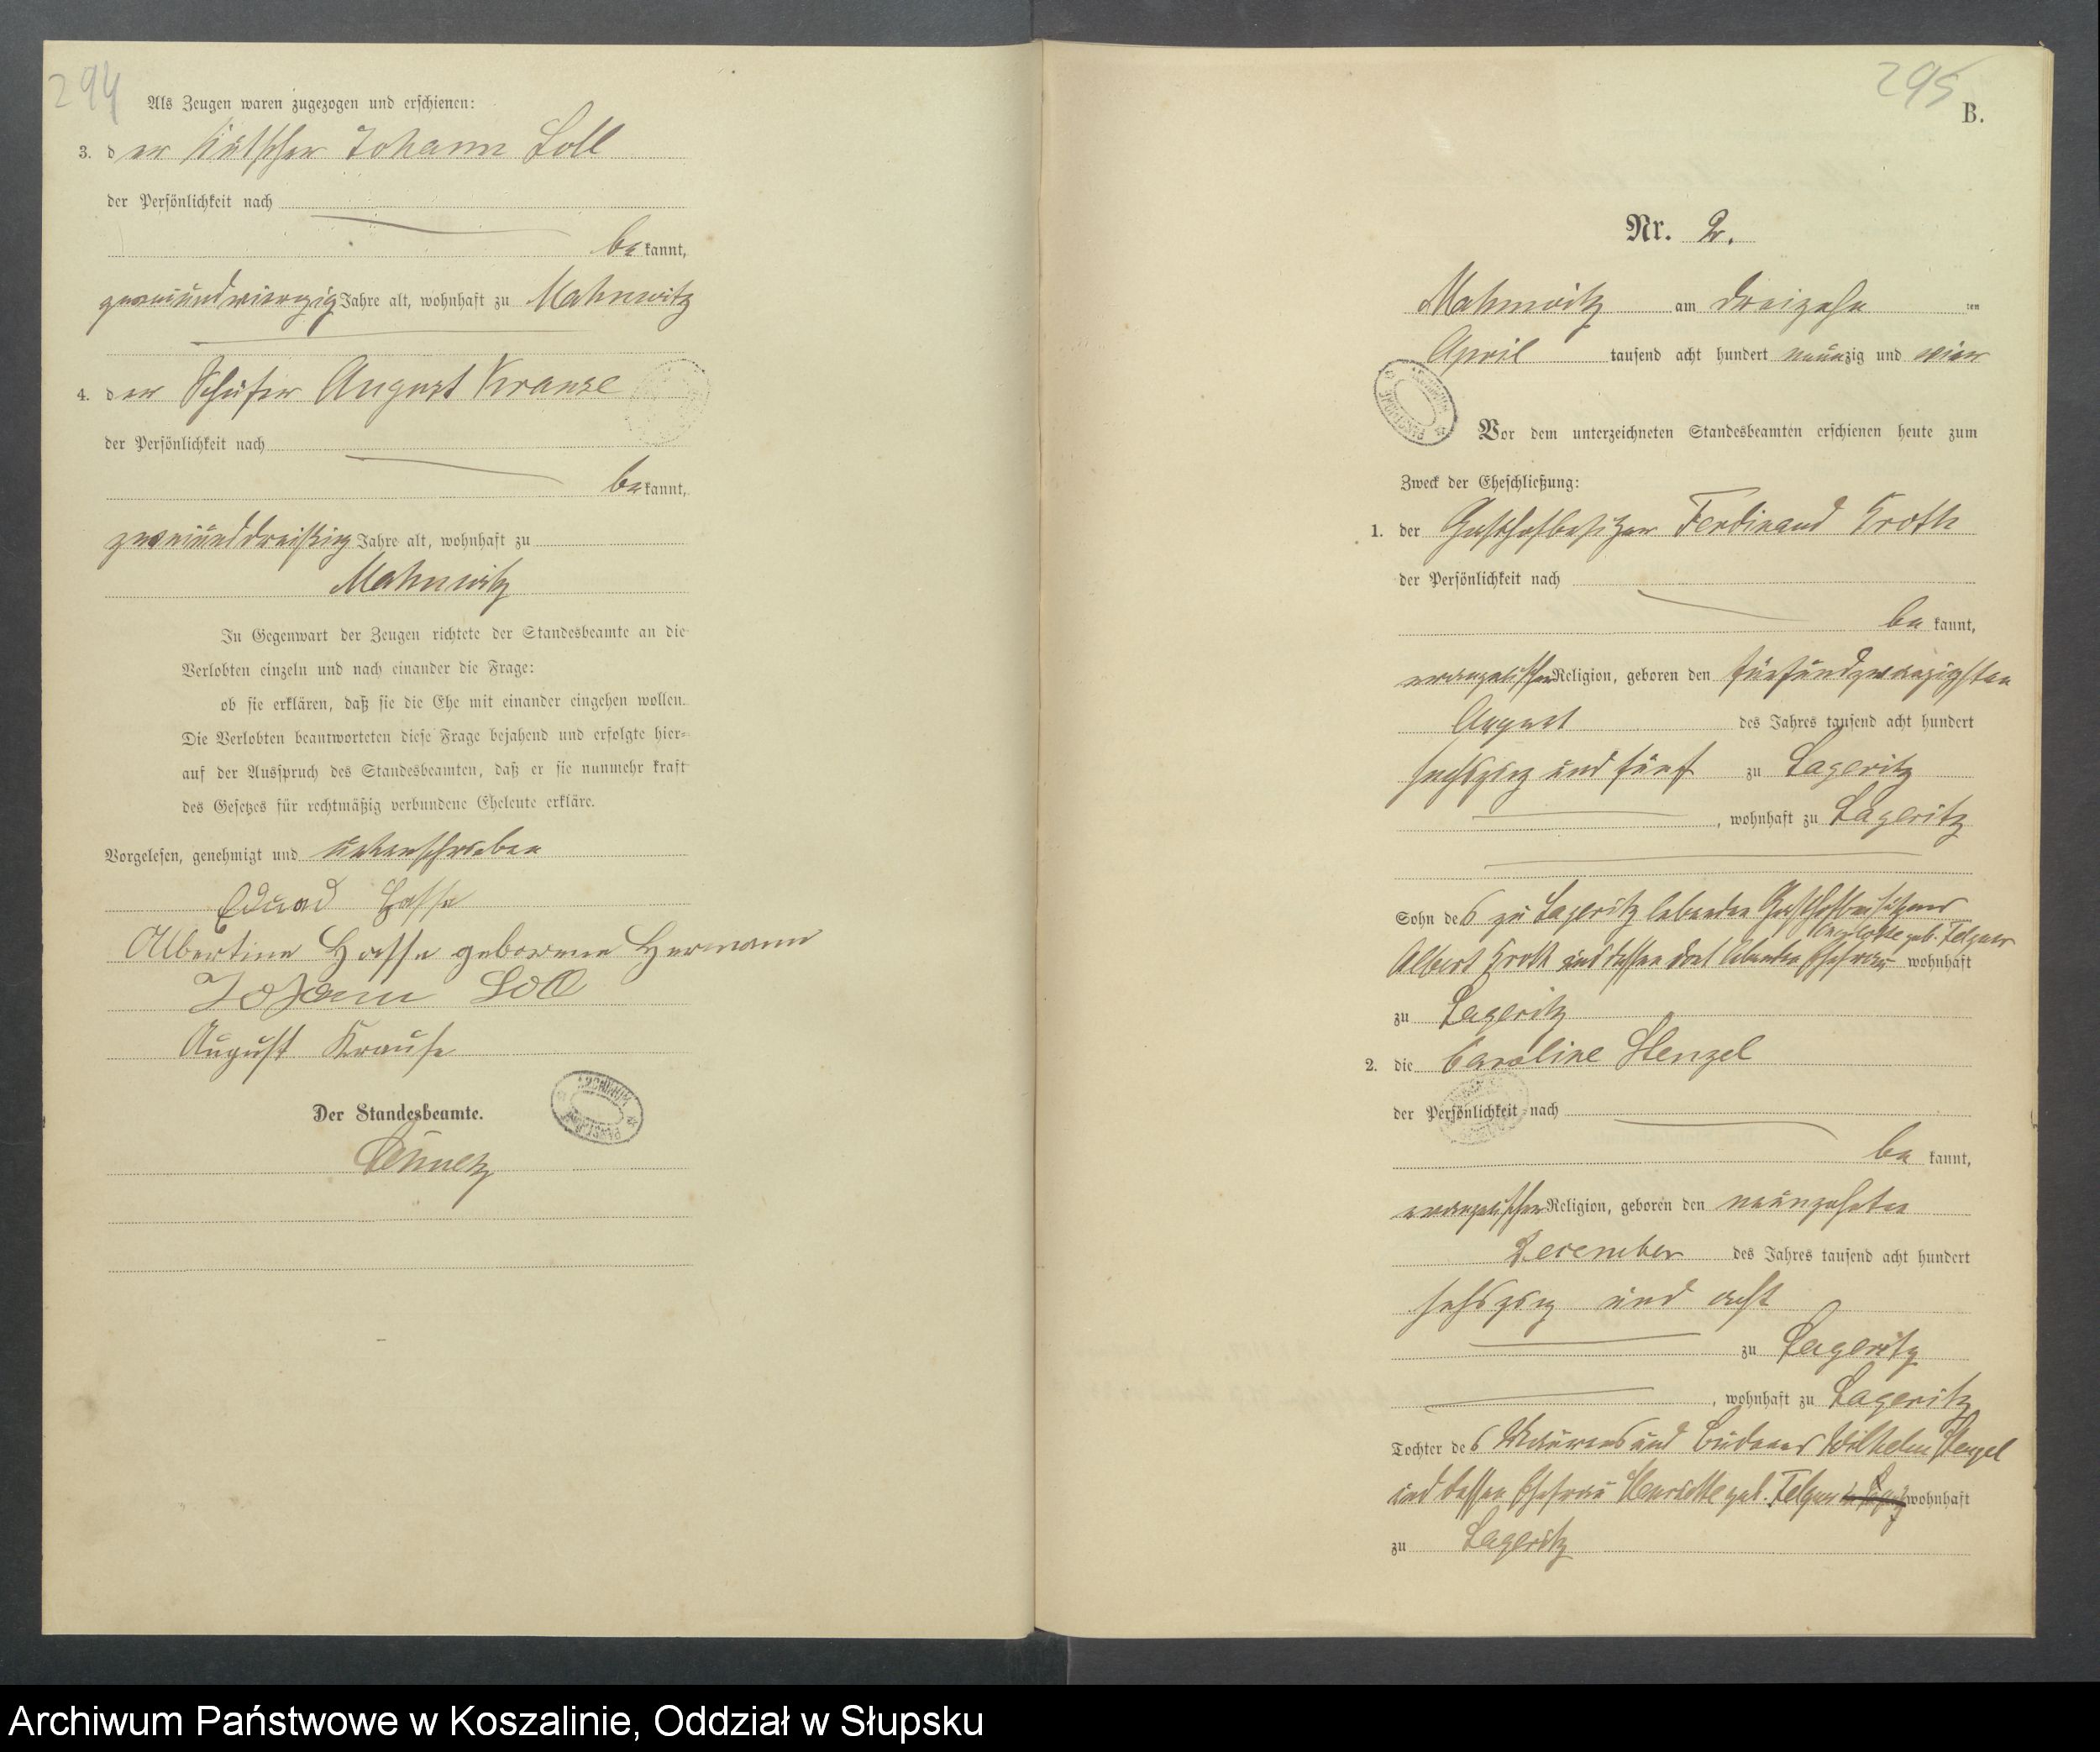 294
Als Zeugen waren zugezogen und erschienen:
3. der Kutscher Johann Loll
der Persönlichkeit nach
bekannt,
zweiundvierzig Jahre alt, wohnhaft zu Mahnwitz
4. der Schäfer August Krause
der Persönlichkeit nach
bekannt,
zweiunddreißig Jahre alt, wohnhaft zu
Mahnwitz
In Gegenwart der Zeugen richtete der Standesbeamte an die
Verlobten einzeln und nach einander die Frage:
ob sie erklären, daß sie die Ehe mit einander eingehen wollen.
Die Verlobten beantworteten diese Frage bejahend und erfolgte hier-
auf der Ausspruch des Standesbeamten, daß er sie nunmehr kraft
des Gesetzes für rechtmäßig verbundene Eheleute erkläre.
Vorgelesen, genehmigt und unterschrieben
Eduad Hasse
Albertine Hasse geborene Hermann
Johann Loll
August Krause
Der Standesbeamte.
295
B.
Nr. 2.
Mahnwitz am dreizehnten
April tausend acht hundert neunzig und vier
Vor dem unterzeichneten Standesbeamten erschienen heute zum
Zweck der Eheschließung:
1. der Ferdinand Kroth
der Persönlichkeit nach
bekannt,
evangelischer Religion, geboren den fünfundzwanzigsten
August des Jahres tausend acht hundert
sechszig und fünf zu Lageritz
, wohnhaft zu Lageritz
Sohn des zu Lageritz lebenden
geb. Felgner
Albert Kroth und dessen dort lebenden Ehefrau wohnhaft
zu Lageritz
2. die Caroline Stenzel
der Persönlichkeit nach
bekannt,
evangelischer Religion, geboren den neunzehnten
December des Jahres tausend acht hundert
sechszig und acht
zu Lageritz
, wohnhaft zu Lageritz
Tochter des Maurers und Büdners Wilhelm Stenzel
und dessen Ehefrau Henriette geb. Felgner wohnhaft
zu Lageritz
Archiwum Państwowe w Koszalinie, Oddział w Słupsku